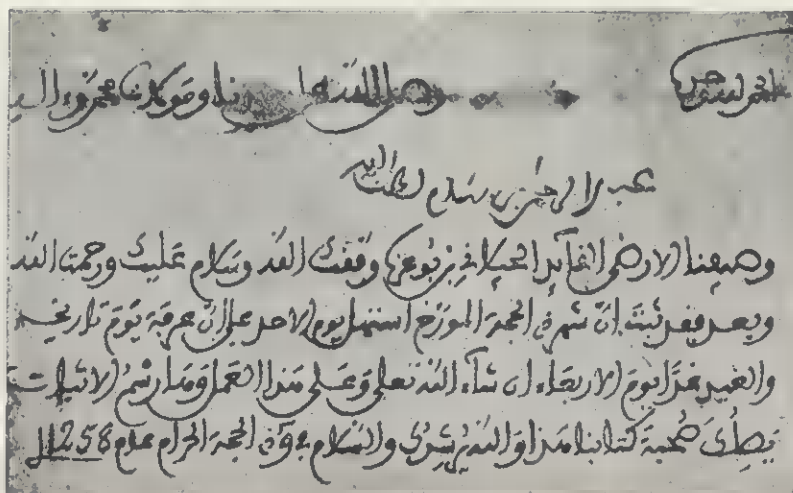 الحمد لله وحده وصلى الله على سيدنا ومولانا محمد وءاله
عبد الرحمن بن هشام لطف الله
وصيفنا الارضى القائد بن بوعزة وفقك الله وسلام عليك ورحمت الله
وبعد فقد ثبت ان شهر ذي الحجة المورخ استهل يوم الاحد على ان عرفة يوم تاريخه
والعيد غدا يوم الاربعاء ان شاء الله تعلى وعلى هذا العمل وهذا رسم الاثبات
يصلك صحبة كتابنا هذا والله والسلام في 9 ذي الحجة الحرام عام 1258